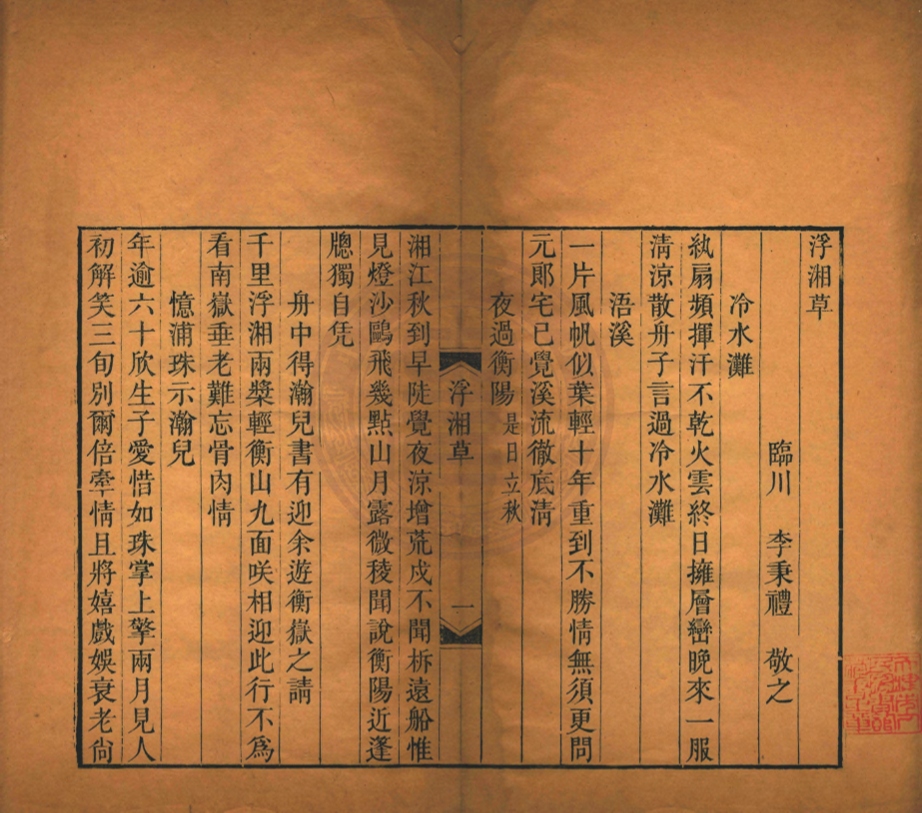 浮湘草
臨川 李秉禮 敬之
冷水灘
紈扇頻揮汗不乾火雲終日擁層巒晚來一服
清涼散舟子言過冷水灘
浯溪
一片風帆似葉輕十年重到不勝情無須更問
元郎宅已覺溪流徹底清
夜過衡陽是日立秋
浮湘草
一
湘江秋到早陡覺夜涼增荒戍不聞柝遠船惟
見燈沙鷗飛幾點山月露微稜聞說衡陽近蓬
牕獨自凭
舟中得瀚兒書有迎余遊衡嶽之請
千里浮湘兩槳輕衡山九面咲相迎此行不爲
看南嶽垂老難忘骨肉情
憶浦珠示瀚兒
年逾六十欣生子愛惜如珠掌上擎兩月見人
初解笑三旬別爾倍牽情且將嬉戲娛衰老尙